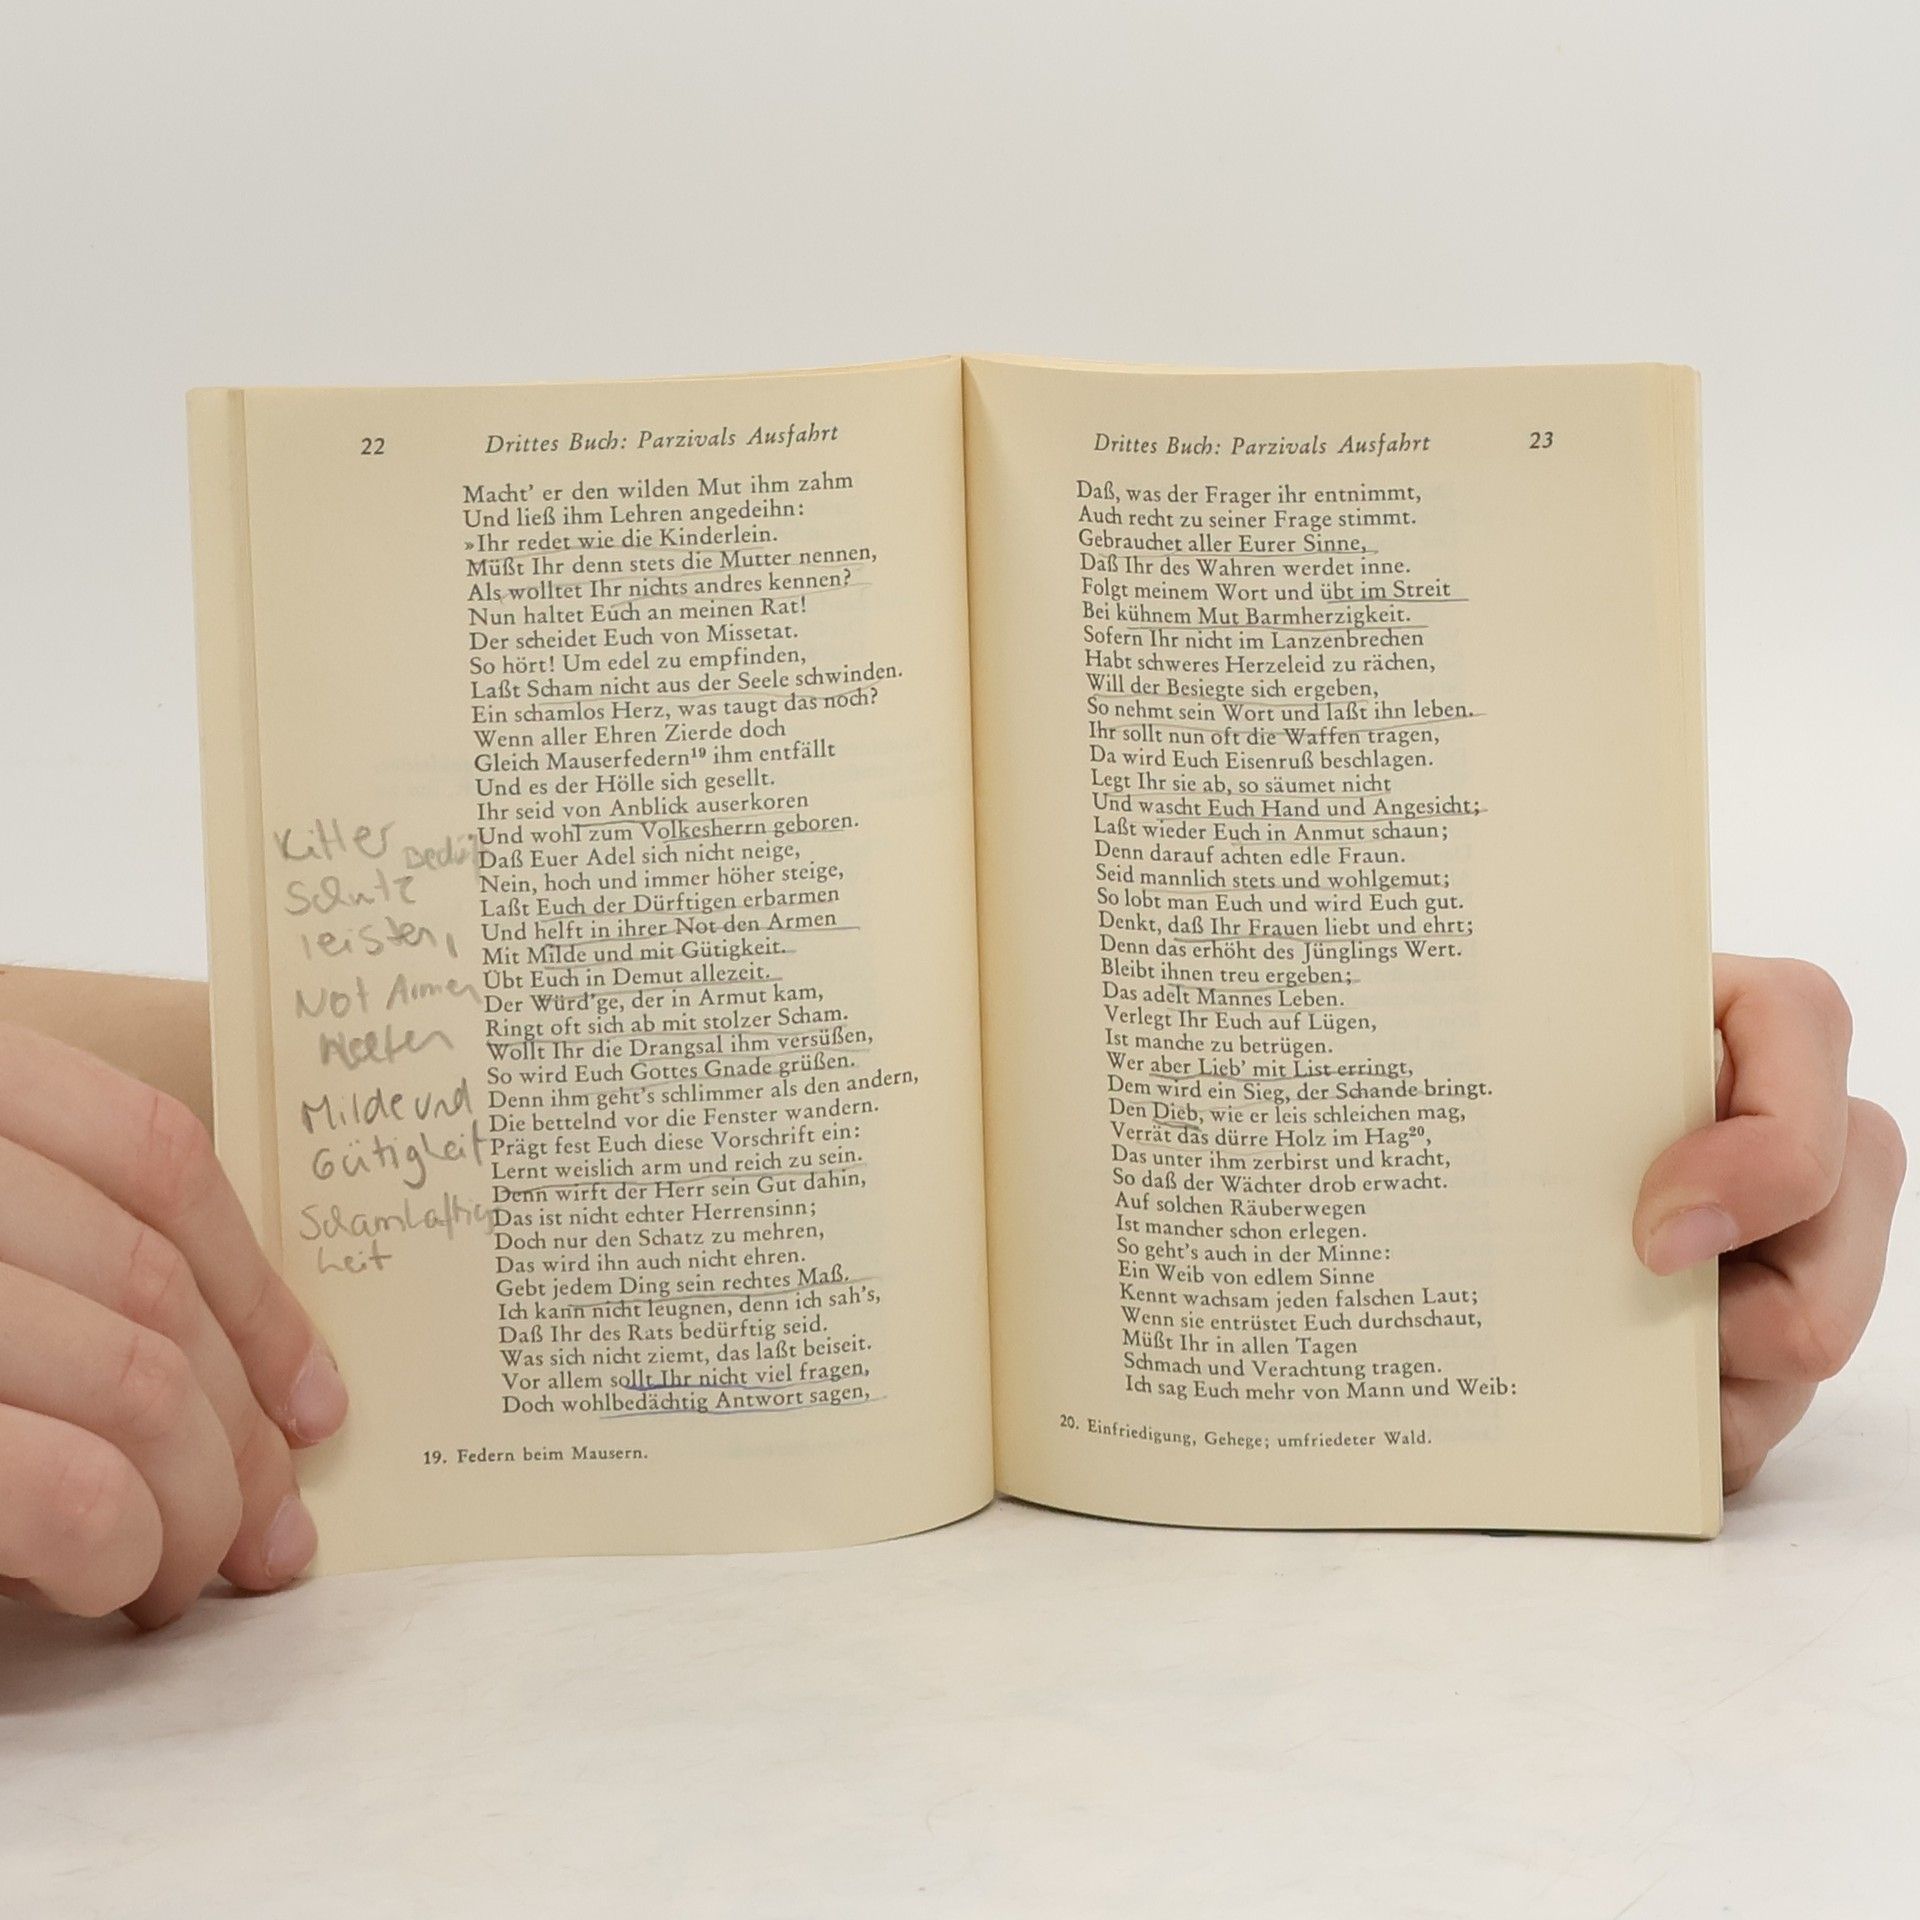 22 Drittes Buch: Parzivals Ausfahrt
Macht' er den wilden Mut ihm zahm
Und ließ ihm Lehren angedeihn:
»Ihr redet wie die Kinderlein.
Müßt Ihr denn stets die Mutter nennen,
Als wolltet Ihr nichts andres kennen?
Nun haltet Euch an meinen Rat!
Der scheidet Euch von Missetat.
So hört! Um edel zu empfinden,
Laßt Scham nicht aus der Seele schwinden.
Ein schamlos Herz, was taugt das noch?
Wenn aller Ehren Zierde doch
Gleich Mauserfedern¹⁹ ihm entfällt
Und es der Hölle sich gesellt.
Ihr seid von Anblick auserkoren
Und wohl zum Volkesherrn geboren.
Daß Euer Adel sich nicht neige,
Nein, hoch und immer höher steige,
Laßt Euch der Dürftigen erbarmen
Und helft in ihrer Not den Armen
Mit Milde und mit Gütigkeit.
Übt Euch in Demut allezeit.
Der Würd'ge, der in Armut kam,
Ringt oft sich ab mit stolzer Scham.
Wollt Ihr die Drangsal ihm versüßen,
So wird Euch Gottes Gnade grüßen.
Denn ihm geht's schlimmer als den andern,
Die bettelnd vor die Fenster wandern.
Prägt fest Euch diese Vorschrift ein:
Lernt weislich arm und reich zu sein.
Denn wirft der Herr sein Gut dahin,
Das ist nicht echter Herrensinn;
Doch nur den Schatz zu mehren,
Das wird ihn auch nicht ehren.
Gebt jedem Ding sein rechtes Maß.
Ich kann nicht leugnen, denn ich sah's,
Daß Ihr des Rats bedürftig seid.
Was sich nicht ziemt, das laßt beiseit.
Vor allem sollt Ihr nicht viel fragen,
Doch wohlbedächtig Antwort sagen,
19. Federn beim Mausern.
Schutz
leisten,
Not Armen
Milde und
Gütigkeit
Schamhaftig
keit
Drittes Buch: Parzivals Ausfahrt 23
Daß, was der Frager ihr entnimmt,
Auch recht zu seiner Frage stimmt.
Gebrauchet aller Eurer Sinne,
Daß Ihr des Wahren werdet inne.
Folgt meinem Wort und übt im Streit
Bei kühnem Mut Barmherzigkeit.
Sofern Ihr nicht im Lanzenbrechen
Habt schweres Herzeleid zu rächen,
Will der Besiegte sich ergeben,
So nehmt sein Wort und laßt ihn leben.
Ihr sollt nun oft die Waffen tragen,
Da wird Euch Eisenruß beschlagen.
Legt Ihr sie ab, so säumet nicht
Und wascht Euch Hand und Angesicht;
Laßt wieder Euch in Anmut schaun;
Denn darauf achten edle Fraun.
Seid mannlich stets und wohlgemut;
So lobt man Euch und wird Euch gut.
Denkt, daß Ihr Frauen liebt und ehrt;
Denn das erhöht des Jünglings Wert.
Bleibt ihnen treu ergeben;
Das adelt Mannes Leben.
Verlegt Ihr Euch auf Lügen,
Ist manche zu betrügen.
Wer aber Lieb' mit List erringt,
Dem wird ein Sieg, der Schande bringt.
Den Dieb, wie er leis schleichen mag,
Verrät das dürre Holz im Hag²⁰,
Das unter ihm zerbirst und kracht,
So daß der Wächter drob erwacht.
Auf solchen Räuberwegen
Ist mancher schon erlegen.
So geht's auch in der Minne:
Ein Weib von edlem Sinne
Kennt wachsam jeden falschen Laut;
Wenn sie entrüstet Euch durchschaut,
Müßt Ihr in allen Tagen
Schmach und Verachtung tragen.
Ich sag Euch mehr von Mann und Weib:
20. Einfriedigung, Gehege; umfriedeter Wald.